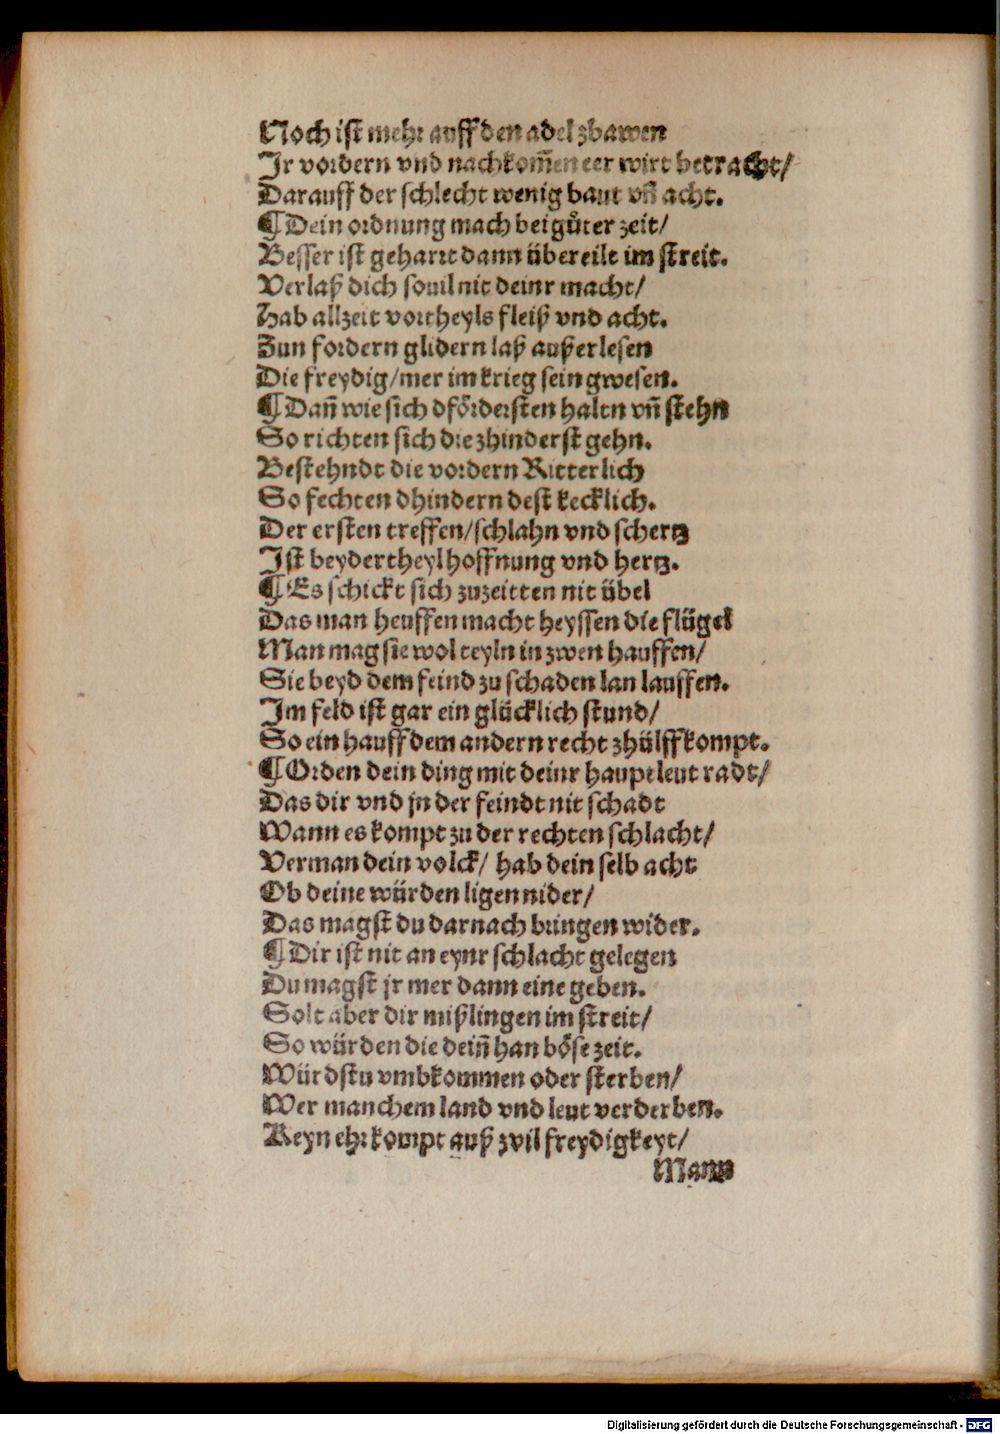 Noch ist mehr auff den adel zbawen
Jr vordern vnd nachkom̃en eer wirt betracht/
Darauff der schlecht wenig baut vñ acht.
¶ Dein ordnung mach bei gůter zeit/
Besser ist geharrt dann übereilt im streit.
Verlaß dich souil nit deinr macht/
Hab allzeit vortheyls fleiß vnd acht.
Zun fordern glidern laß außerlesen
Die freydig/mer im krieg sein gwesen.
¶ Dañ wie sich dfördersten haltn vñ stehn
So richten sich die zhinderst gehn.
Bestehndt die vordern Ritterlich
So fechten dhindern dest kecklich.
Der ersten treffen/schlahn vnd schertz
Jst beydertheyl hoffnung vnd hertz.
¶ Es schickt sich zuzeitten nit übel
Das man heuffen macht heyssen die flügel
Man mag sie wol teyln in zwen hauffen/
Sie beyd dem feind zu schaden lan lauffen.
Jm feld ist gar ein glücklich stund/
So ein hauff dem andern recht zhülff kompt.
¶ Orden dein ding mit deinr hauptleut radt/
Das dir vnd jn der feindt nit schadt
Wann es kompt zu der rechten schlacht/
Verman dein volck/ hab dein selb acht
Ob deine würden ligen nider/
Das magst du darnach bringen wider.
¶ Dir ist nit an eynr schlacht gelegen
Du magst jr mer dann eine geben.
Solt aber dir mißlingen im streit/
So würden die deiñ han böse zeit.
Würdstu vmbkommen oder sterben/
Wer manchem land vnd leut verderben.
Keyn ehr kompt auß zvil freydigkeyt/
Mann
Digitalisierung gefördert durch die Deutsche Forschungsgemeinschaft - DFG